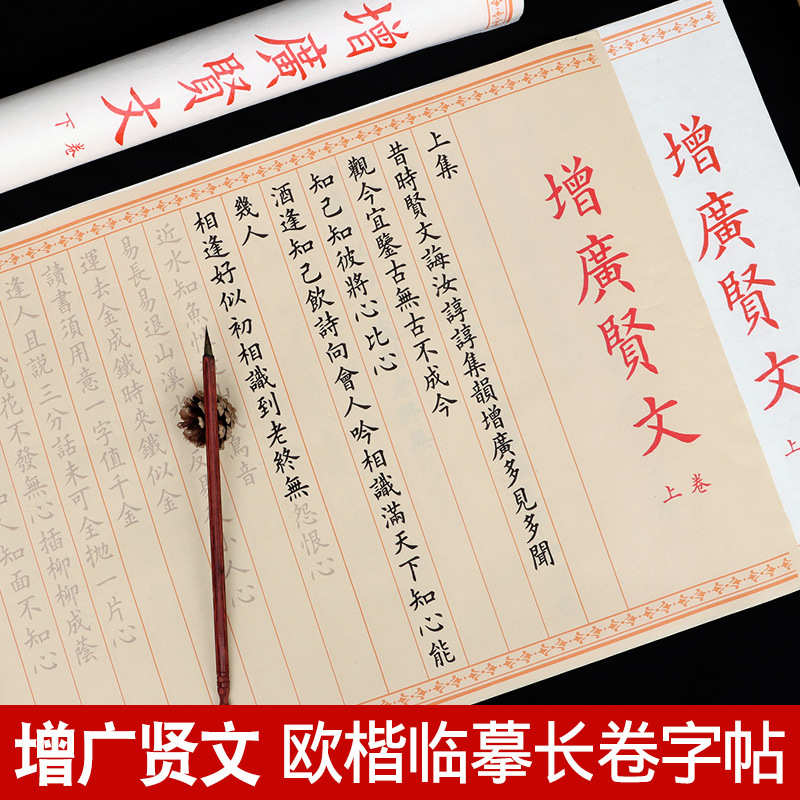 增廣賢文
下卷
增廣賢文
上
增廣賢文
上卷
上集
昔時賢文誨汝諄諄集韻增廣多見多聞
觀今宜鑒古無古不成今
知己知彼將心比心
酒逢知己飲詩向會人吟相識滿天下知心能
幾人
相逢好似初相識到老終無怨恨心
近水知魚性鳥音
易長易退山溪反小人心
運去金成鐵時來鐵似金
讀書須用意一字值千金
逢人且說三分話未可全拋一片心
花花不發無心插柳柳成蔭
知面不知心
增广贤文 欧楷临摹长卷字帖